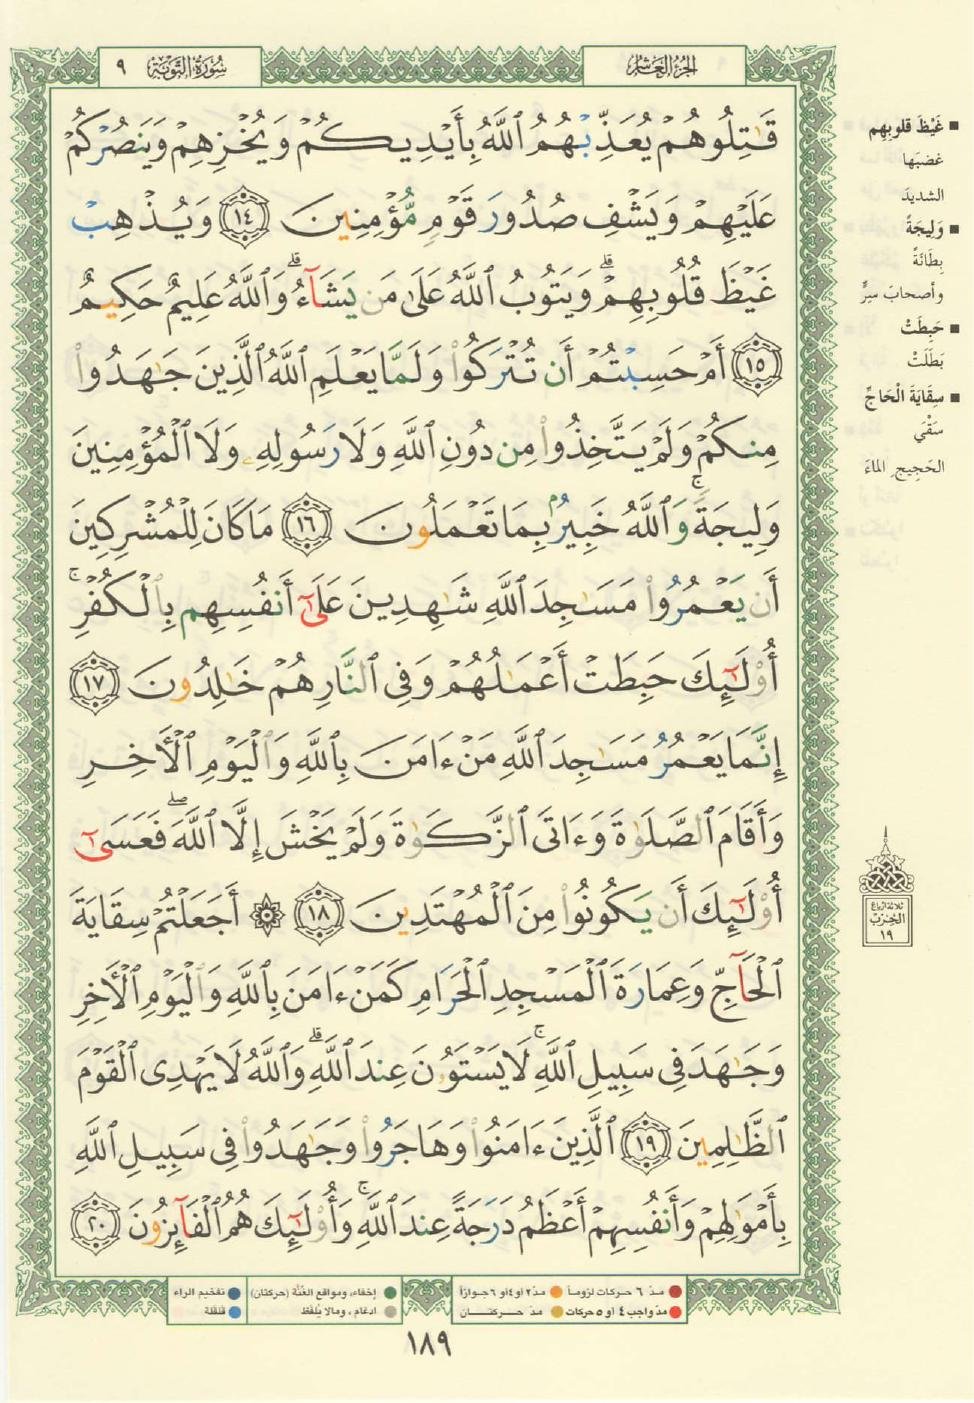 الجزء العاشر
سورة التوبة ٩
قَـٰتِلُوهُمْ يُعَذِّبْهُمُ ٱللَّهُ بِأَيْدِيكُمْ وَيُخْزِهِمْ وَيَنصُرْكُمْ
عَلَيْهِمْ وَيَشْفِ صُدُورَ قَوْمٍ مُّؤْمِنِينَ ١٤ وَيُذْهِبْ
غَيْظَ قُلُوبِهِمْ ۗ وَيَتُوبُ ٱللَّهُ عَلَىٰ مَن يَشَآءُ ۗ وَٱللَّهُ عَلِيمٌ حَكِيمٌ
١٥ أَمْ حَسِبْتُمْ أَن تُتْرَكُوا۟ وَلَمَّا يَعْلَمِ ٱللَّهُ ٱلَّذِينَ جَـٰهَدُوا۟
مِنكُمْ وَلَمْ يَتَّخِذُوا۟ مِن دُونِ ٱللَّهِ وَلَا رَسُولِهِۦ وَلَا ٱلْمُؤْمِنِينَ
وَلِيجَةً ۚ وَٱللَّهُ خَبِيرٌۢ بِمَا تَعْمَلُونَ ١٦ مَا كَانَ لِلْمُشْرِكِينَ
أَن يَعْمُرُوا۟ مَسَـٰجِدَ ٱللَّهِ شَـٰهِدِينَ عَلَىٰٓ أَنفُسِهِم بِٱلْكُفْرِ ۚ
أُو۟لَـٰٓئِكَ حَبِطَتْ أَعْمَـٰلُهُمْ وَفِى ٱلنَّارِ هُمْ خَـٰلِدُونَ ١٧
إِنَّمَا يَعْمُرُ مَسَـٰجِدَ ٱللَّهِ مَنْ ءَامَنَ بِٱللَّهِ وَٱلْيَوْمِ ٱلْـَٔاخِرِ
وَأَقَامَ ٱلصَّلَوٰةَ وَءَاتَى ٱلزَّكَوٰةَ وَلَمْ يَخْشَ إِلَّا ٱللَّهَ ۖ فَعَسَىٰٓ
أُو۟لَـٰٓئِكَ أَن يَكُونُوا۟ مِنَ ٱلْمُهْتَدِينَ ١٨ ۞ أَجَعَلْتُمْ سِقَايَةَ
ٱلْحَآجِّ وَعِمَارَةَ ٱلْمَسْجِدِ ٱلْحَرَامِ كَمَنْ ءَامَنَ بِٱللَّهِ وَٱلْيَوْمِ ٱلْـَٔاخِرِ
وَجَـٰهَدَ فِى سَبِيلِ ٱللَّهِ ۚ لَا يَسْتَوُۥنَ عِندَ ٱللَّهِ ۗ وَٱللَّهُ لَا يَهْدِى ٱلْقَوْمَ
ٱلظَّـٰلِمِينَ ١٩ ٱلَّذِينَ ءَامَنُوا۟ وَهَاجَرُوا۟ وَجَـٰهَدُوا۟ فِى سَبِيلِ ٱللَّهِ
بِأَمْوَٰلِهِمْ وَأَنفُسِهِمْ أَعْظَمُ دَرَجَةً عِندَ ٱللَّهِ ۚ وَأُو۟لَـٰٓئِكَ هُمُ ٱلْفَآئِزُونَ ٢٠
■ غَيْظَ قلوبِهِم
غضبَها
الشديدَ
■ وَلِيجَةً
بِطَانَةً
وأصحابَ سِرٍّ
■ حَبِطَتْ
بَطَلَتْ
■ سِقَايَةَ الْحَاجِّ
سَقْيَ
الحَجِيجِ الماءَ
ثلاثة أرباع
الحزب
١٩
مدّ ٦ حركات لزوماً ● مدّ ٢ أو ٤ أو ٦ جوازاً
مدّ واجب ٤ أو ٥ حركات ● مدّ حركتان
إخفاء، ومواقع الغنّة (حركتان)
ادغام، ومالا يُلفظ
تفخيم الراء
قلقلة
١٨٩